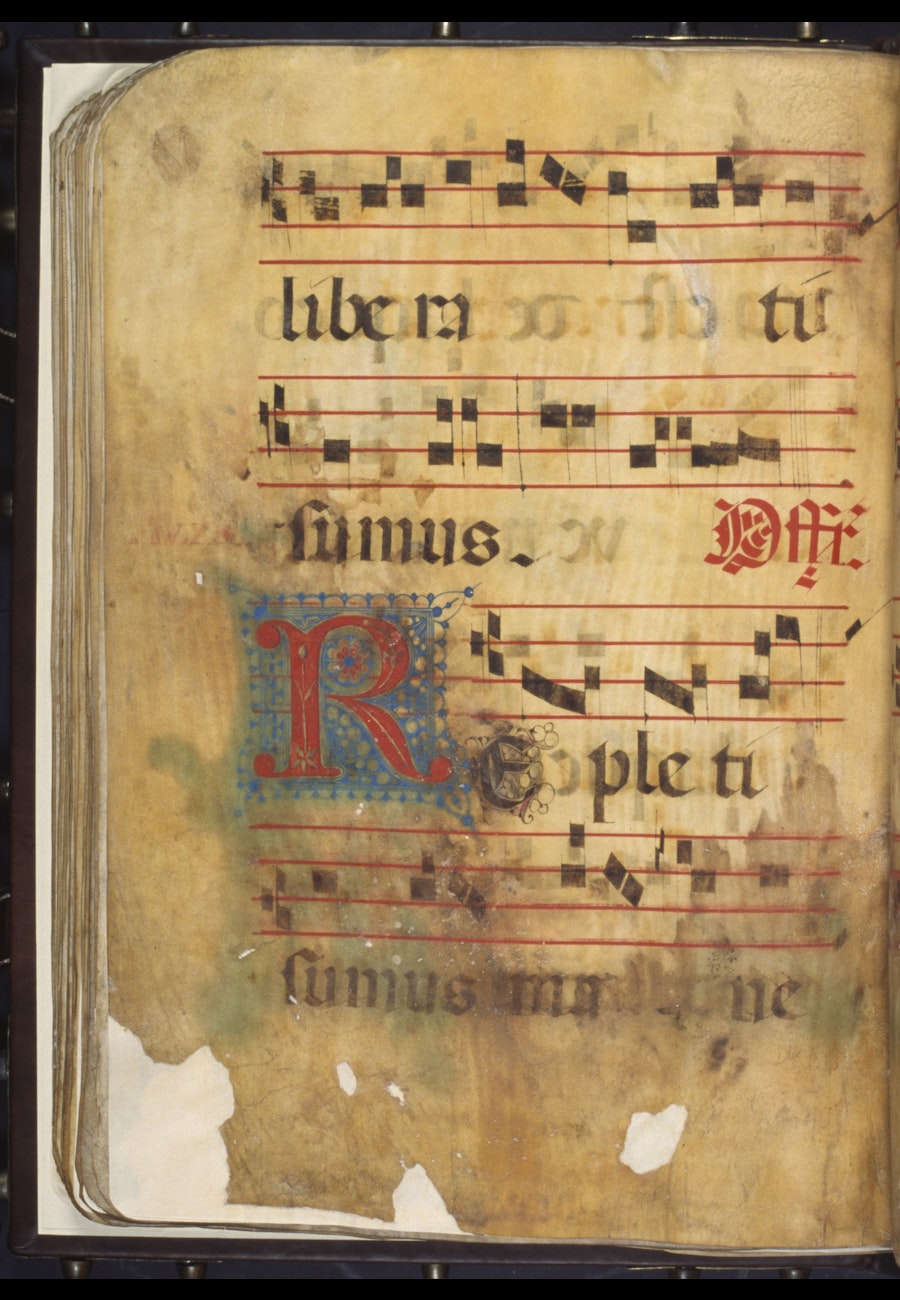 libera ti
sumus.
Offr.
REpleti
sumus ma ne